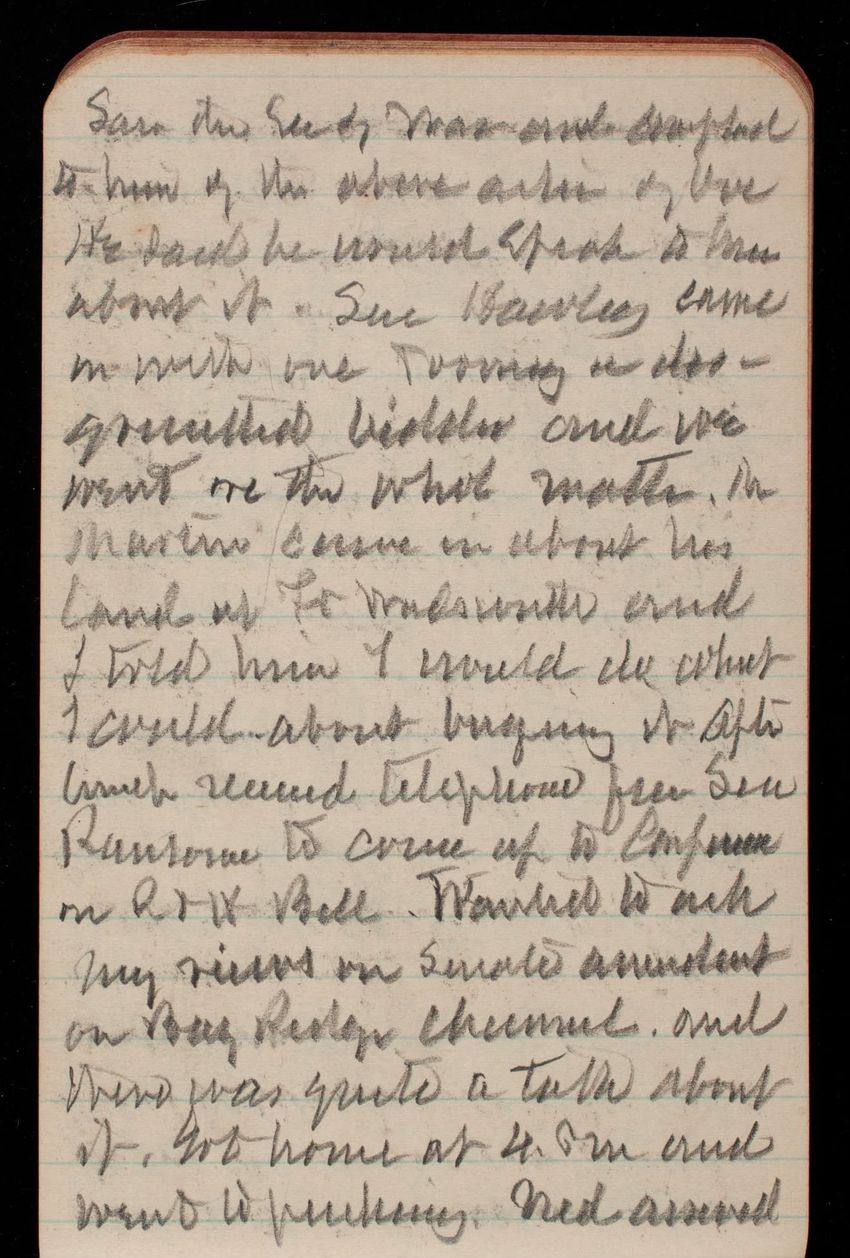 Saw the Secty War and complained
to him of the above action of
He said he would speak to him
about it. Sen Hawley came
in with one Toomey a dis-
gruntled bidder and we
went over the whole matter. Mr
Martin came in about his
land at Ft Wadsworth and
I told him I would do what
I could about buying it After
lunch received telephone from Sen
Ransome to come up to Conference
on R & H Bill. Wanted to ask
my views on Senate amendment
on Bay Ridge Channel. and
there was quite a talk about
it. Got home at 4. Pm and
went to packing. Ned arrived